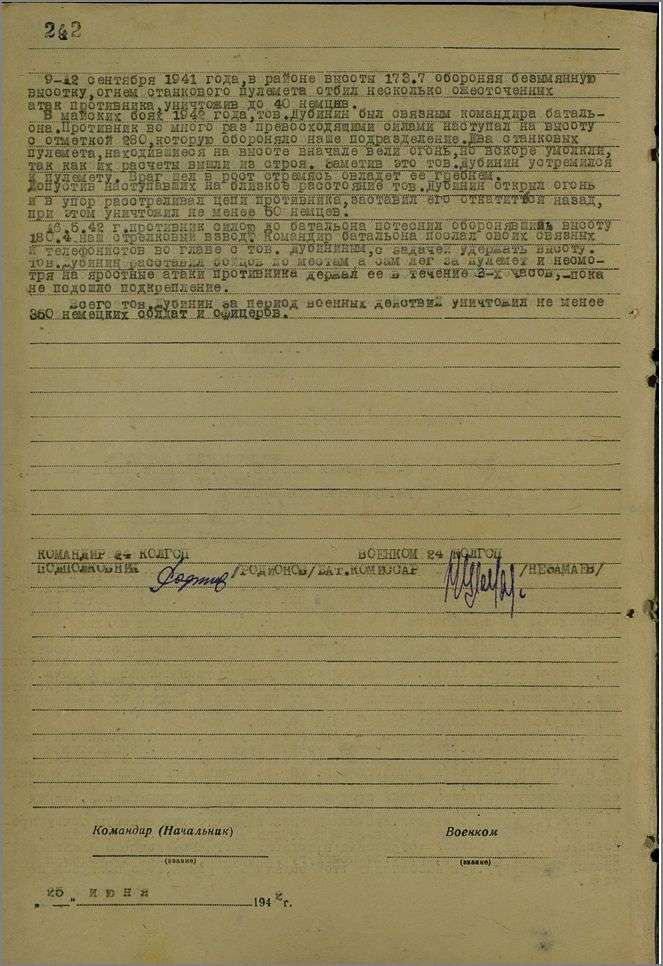 242
9-12 сентября 1941 года,в районе высоты 173.7 обороняя безымянную
высотку,огнем станкового пулемета отбил несколько ожесточенных
атак противника,уничтожив до 40 немцев.
В майских боях 1942 года,тов.Дубинин был связным командира баталь-
она.Противник во много раз превосходящими силами наступал на высоту
с отметкой 280,которую обороняло наше подразделение.Два станковых
пулемета,находившиеся на высоте вначале вели огонь,но вскоре умолкли,
так как их расчеты вышли из строя. Заметив это тов.Дубинин устремился
к пулемету. Враг шел в рост стремясь овладеть ее гребнем.
Допустив наступавших на близкое расстояние тов.Дубинин открыл огонь
и в упор расстреливал цепи противника,заставил его откатиться назад,
при этом уничтожил не менее 50 немцев.
.6.42 г.противник силою до батальона потеснил оборонявший высоту
180.4 наш стрелковый взвод. Командир батальона послал своих связных
и телефонистов во главе с тов. Дубининым,с задачей удержать высоту.
Тов.Дубинин расставил бойцов по местам а сам лег за пулемет и несмо-
тря на яростные атаки противника держал ее в течение 3-х часов,-пока
не подошло подкрепление.
Всего тов.Дубинин за период военных действий уничтожил не менее
немецких солдат и офицеров.
КОМАНДИР 24 КОЛГСП ВОЕНКОМ 24 КОЛГСП
ПОДПОЛКОВНИК /РОДИОНОВ/ БАТ.КОМИССАР /НЕЗАМАЕВ/
Командир (Начальник) Военком
(звание) (звание)
„25" июня 1942 г.